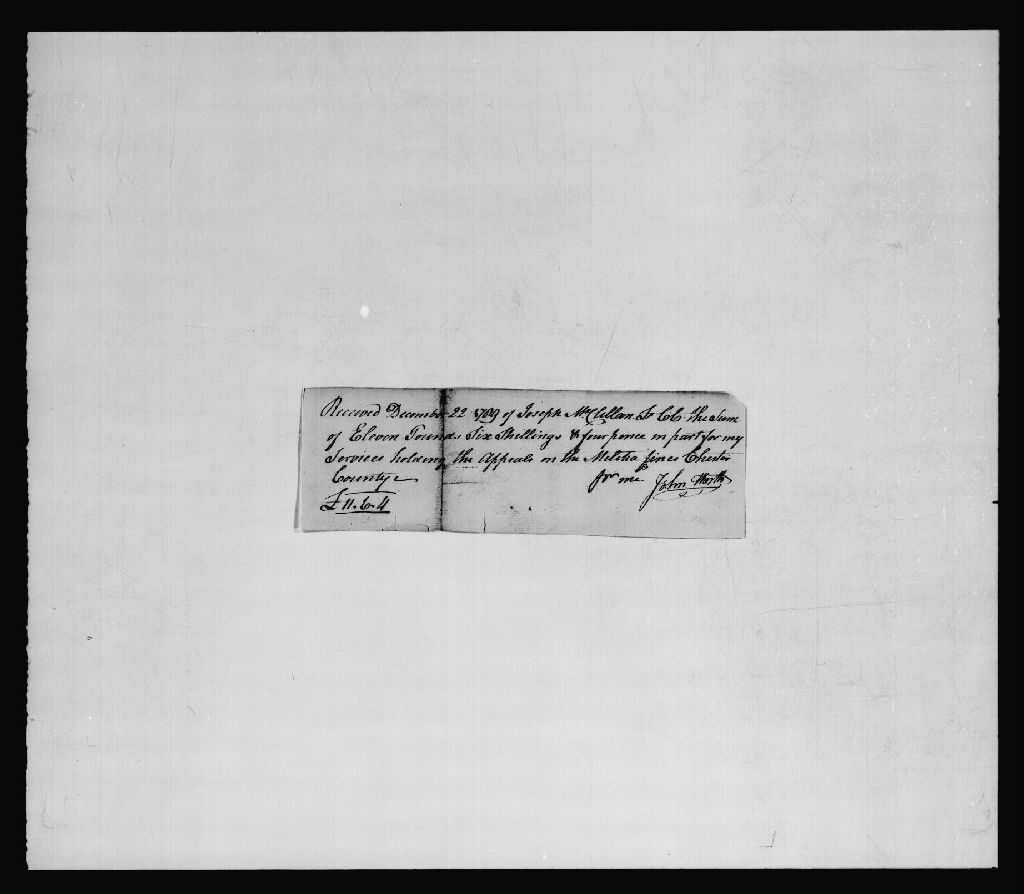 Received December 22 1789 of Joseph McClellan Lt Col the Sum
of Eleven Pounds Six Shillings & four pence in part for my
Services holding the Appeals on the Melitia fines Chester
County
pr me John Worth
£11.6.4